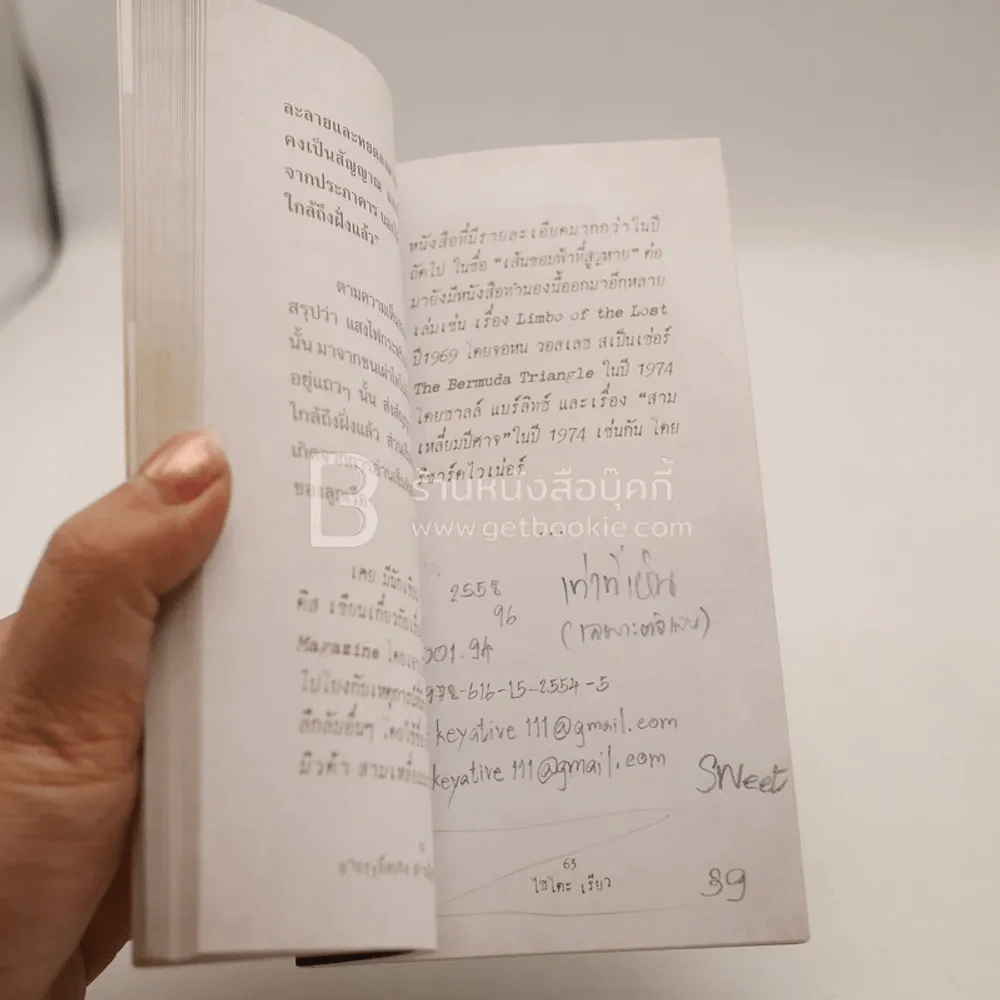 ละลายและหยดลง
คงเป็นสัญญาณ
จากประภาคาร
ใกล้ถึงฝั่งแล้ว"
ตามความ
สรุปว่า แสงไฟ
นั้น มาจากชนเผ่า
อยู่แถวๆ นั้น ส่ง
ใกล้ถึงฝั่งแล้ว ส่วน
เกิดจากการ
เคย มีนัก
ดิส เขียนเกี่ยวกับ
Magazine โดย
ไปโยงกับเหตุการณ์
ลึกลับอื่นๆ โดยใช้
มิวด้า สามเหลี่ยม
หนังสือที่มีรายละเอียดมากกว่าในปี
ถัดไป ในชื่อ "เส้นขอบฟ้าที่สูญหาย" ต่อ
มายังมีหนังสือทำนองนี้ออกมาอีกหลาย
เล่มเช่น เรื่อง Limbo of the Lost
ปี1969 โดยจอหน วอลเลซ สเป็นเซ่อร์
The Bermuda Triangle ในปี 1974
โดยชาลล์ แบร์ลิทซ์ และเรื่อง "สาม
เหลี่ยมปีศาจ" ในปี 1974 เช่นกัน โดย
ริชาร์ดไวเน่อร์
ร้านหนังสือบุ๊คกี้
www.getbookie.com
...
2558 เท่าที่เห็น
96
001.94
978-616-15-2554-5
keyative111@gmail.com
keyative111@gmail.com
SWeet
63
ไซโคะ เรียว
39